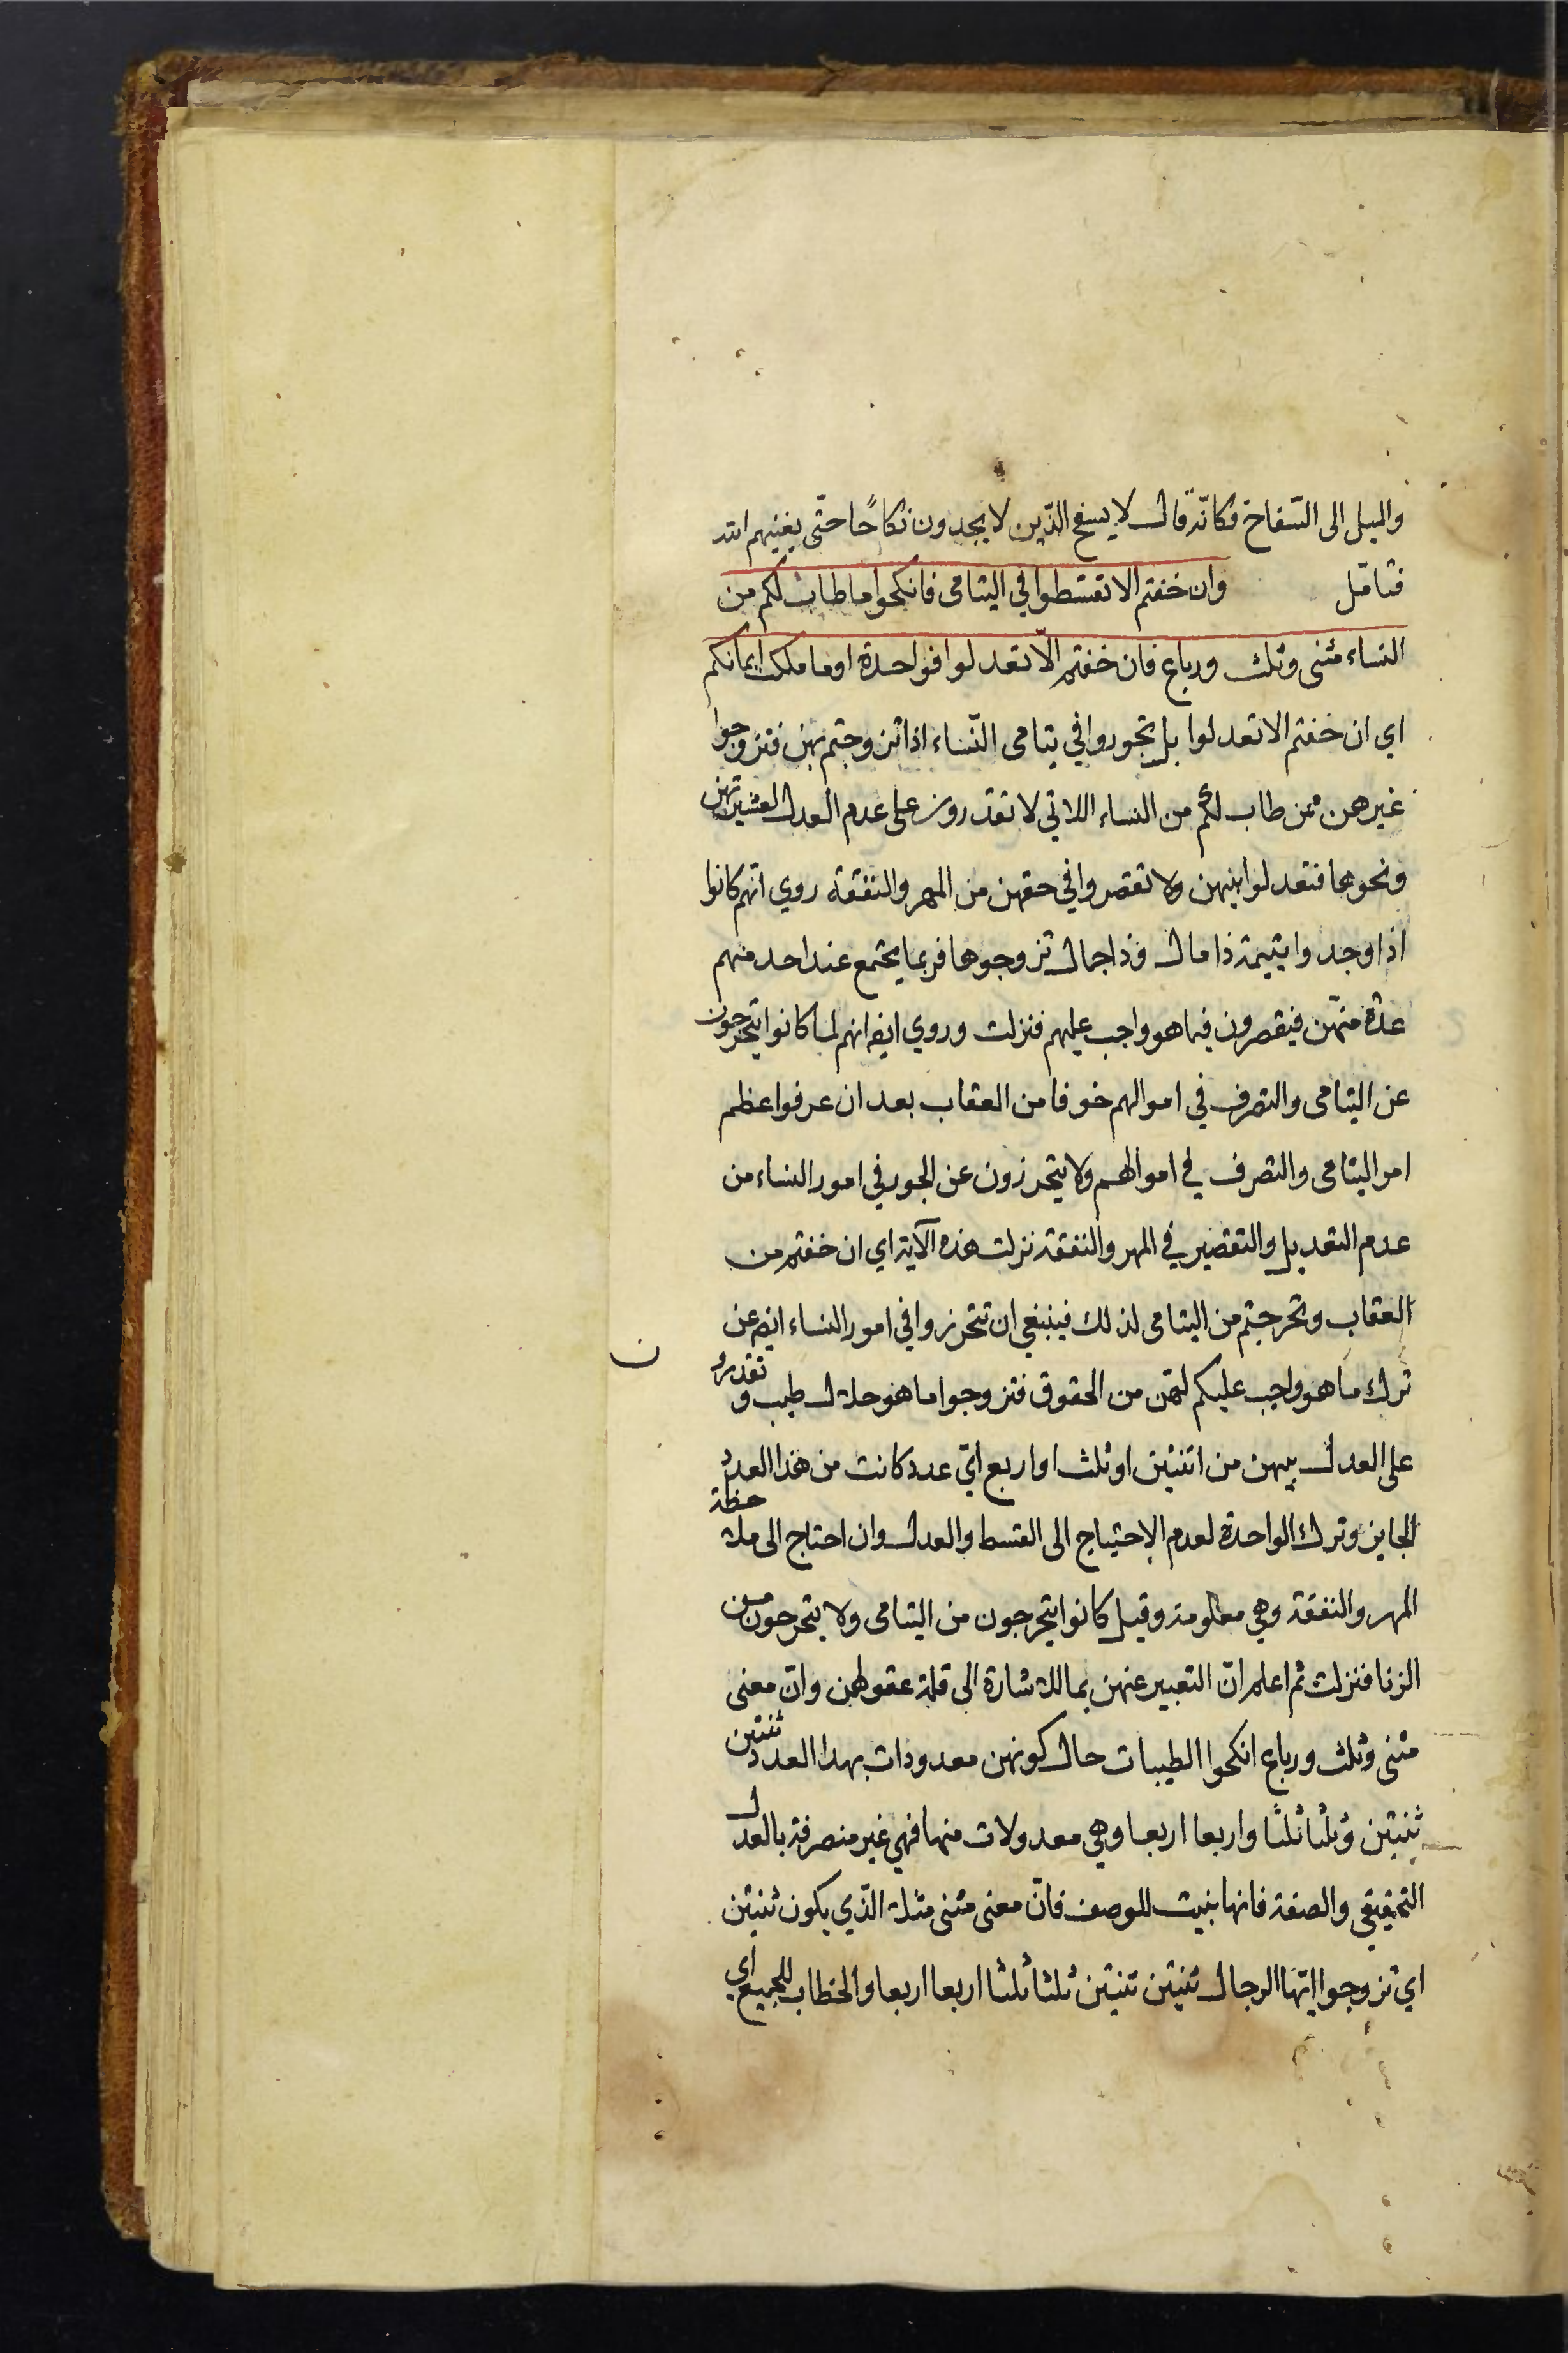 والميل الى السّفاح فكانّه قال لا يسفح الذّين لا يجدون نكاحًا حتّى يغنيهم الله
فتامّل وان خفتم الا تقسطوا في اليتامى فانكحوا ما طاب لكم من
النساء مثنى وثلث ورباع فان خفتم الّا تعدلوا فواحدة او ما ملكت ايمانكم
اي ان خفتم الا تعدلوا بل تجوروا في يتامى النّساء اذا تزوجتم بهن فتزوجوا
غيرهن ممن طاب لكم من النساء اللاتي لا تقدرون على عدم العدل لعشيرتهن
ونحوها فتعدلوا بينهن ولا تقصروا في حقهن من المهر والنفقة روي انّهم كانوا
اذا وجدوا يتيمة ذا مال وذا جمال تزوجوها فربما يجتمع عند احد منهم
عدّة منهّن فيقصرون فيما هو واجب عليهم فنزلت وروي ايضا انهم لما كانوا يتحرجون
عن اليتامى والتصرف في اموالهم خوفا من العقاب بعد ان عرفوا عظم
امر اليتامى والتصرف في اموالهم ولا يتحرزون عن الجور في امور النساء من
عدم التعديل والتقصير في المهر والنفقة نزلت هذه الآية اي ان خفتم من
العقاب وتحرجتم من اليتامى لذلك فينبغي ان تتحرزوا في امور النساء ايضا عن
ترك ما هو واجب عليكم لهّن من الحقوق فتزوجوا ما هو حلال طيب وتقدرون
على العدل بينهن من اثنتين او ثلث او اربع ايّ عدد كانت من هذا العدد
الجايز وترك الواحدة لعدم الاحتياج الى القسط والعدل وان احتاج الى ملاحظة
المهر والنفقة وهي معلومة وقيل كانوا يتحرجون من اليتامى ولا يتحرجون من
الزنا فنزلت ثم اعلم انّ التعبير عنهن بما للاشارة الى قلة عقولهن وانّ معنى
مثنى وثلث ورباع انكحوا الطيبات حال كونهن معدودات بهذا العدد ثنتين
ثنتين وثلثا ثلثا واربعا اربعا وهي معدولات منها فهي غير منصرفة بالعدل
التحقيقي والصفة فانها بنيت للوصف فانّ معنى مثنى مثلا الّذي يكون ثنتين
اي تزوجوا ايّها الرجال ثنتين ثنتين ثلثا ثلثا اربعا اربعا والخطاب للجميع اي